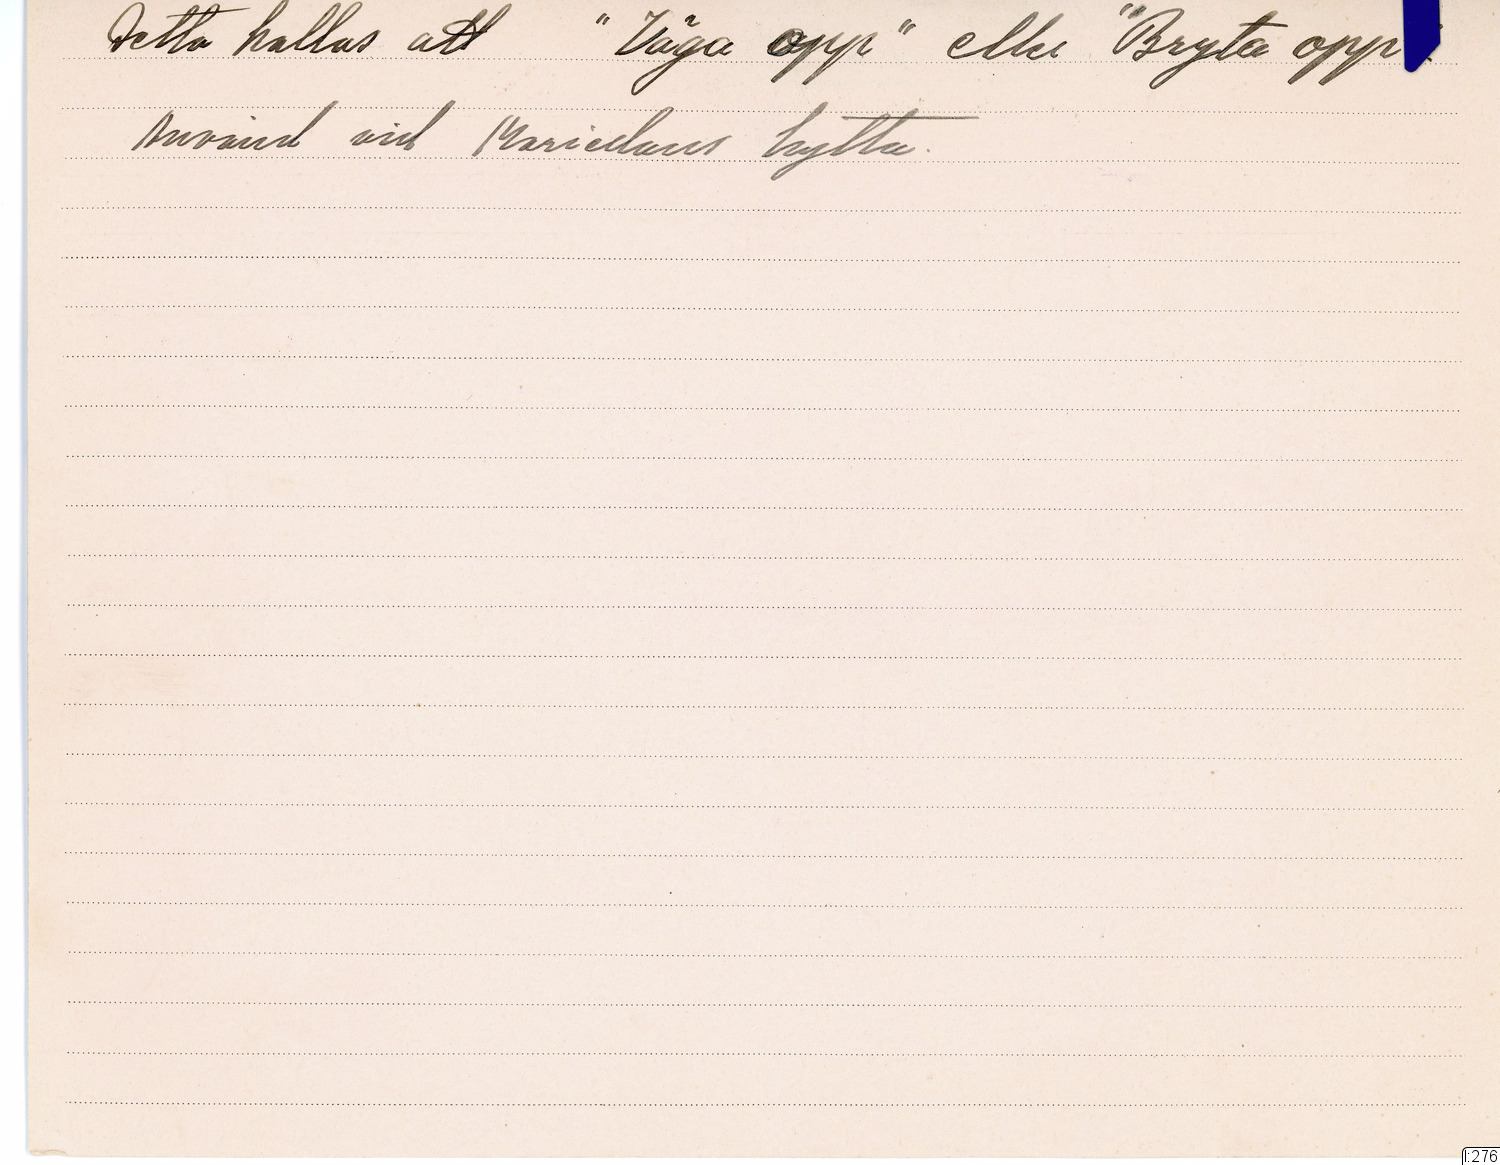 Detta kallas att "Väga opp" eller "Bryta opp".
Använd vid Mariedams hytta.
I:276